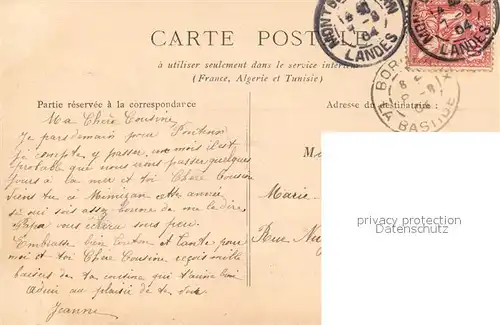 CARTE POSTALE
à utiliser seulement dans le service intérieur
(France, Algerie et Tunisie)
Partie réservée à la correspondance
Adresse du destinataire:
MONT
LANDES
04
MONT
LANDES
04
BOR
LA BASTIDE
Ma Chère Cousine
Je pars demain pour Pontenx
Je compte y passer, un mois il est
probable que nous irons passer quelques
jours à la mer et toi Chère Cousine
viens tu à Mimizan cette année
si oui sois assez bonne de me le dire
Papa vous écrira sous peu.
Embrasse bien tonton et tante pour
moi et toi Chère Cousine reçois mille
baisers de ta cousine qui t'aime bien
au plaisir de te voir
Jeanne
Marie
Rue
privacy protection
Datenschutz